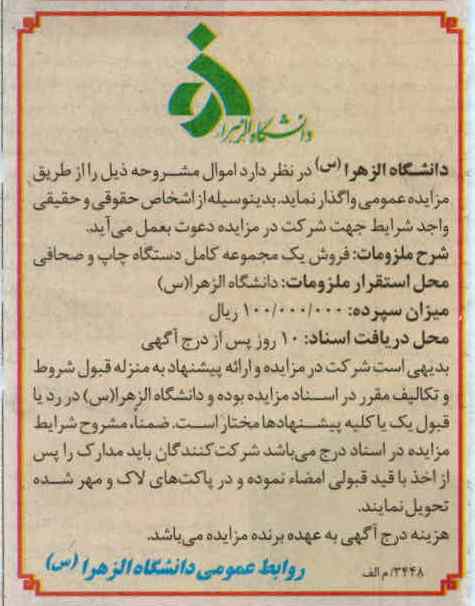 دانشگاه الزهرا
دانشگاه الزهرا (س) در نظر دارد اموال مشروحه ذیل را از طریق
مزایده عمومی واگذار نماید. بدینوسیله از اشخاص حقوقی و حقیقی
واجد شرایط جهت شرکت در مزایده دعوت بعمل می‌آید.
شرح ملزومات: فروش یک مجموعه کامل دستگاه چاپ و صحافی
محل استقرار ملزومات: دانشگاه الزهرا(س)
میزان سپرده: ۱۰۰/۰۰۰/۰۰۰ ریال
محل دریافت اسناد: ۱۰ روز پس از درج آگهی
بدیهی است شرکت در مزایده و ارائه پیشنهاد به منزله قبول شروط
و تکالیف مقرر در اسناد مزایده بوده و دانشگاه الزهرا(س) در رد یا
قبول یک یا کلیه پیشنهادها مختار است. ضمناً، مشروح شرایط
مزایده در اسناد درج می‌باشد شرکت کنندگان باید مدارک را پس
از اخذ با قید قبولی امضاء نموده و در پاکت‌های لاک و مهر شده
تحویل نمایند.
هزینه درج آگهی به عهده برنده مزایده می‌باشد.
روابط عمومی دانشگاه الزهرا (س)
۳۴۴۸/م الف